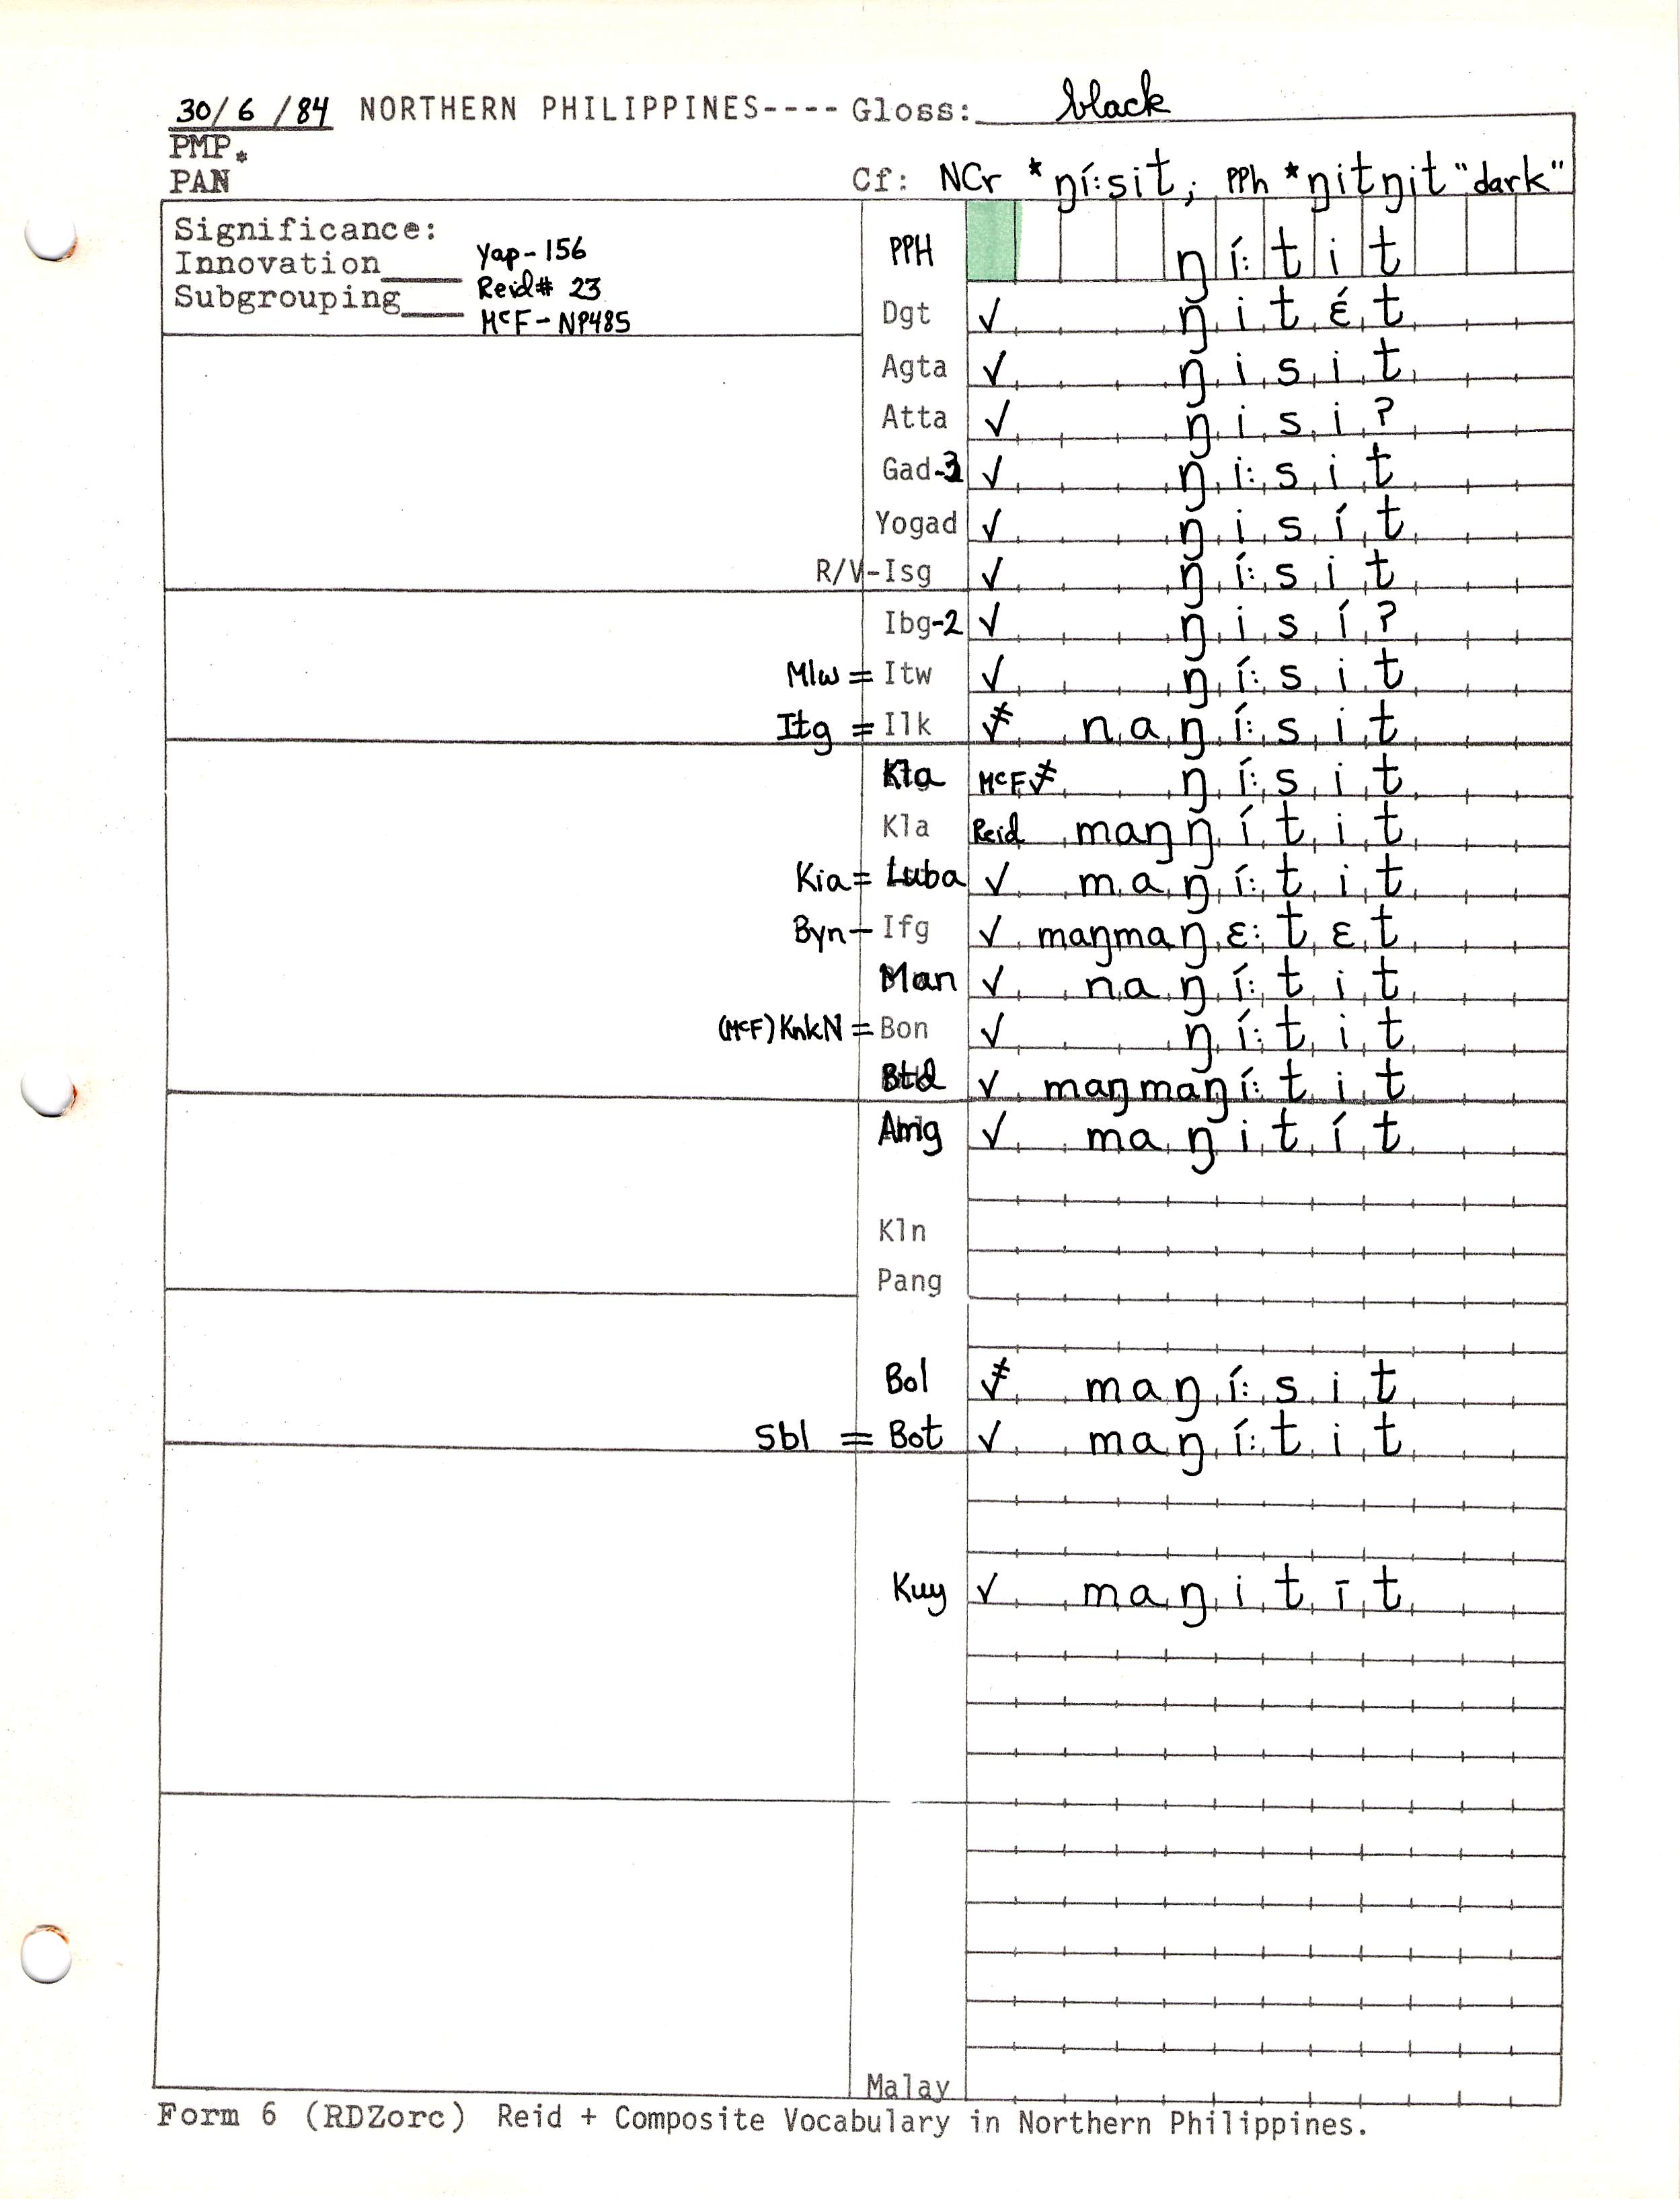 30/6/84 NORTHERN PHILIPPINES---- Gloss: black
PMP*
PAN Cf: NCr *ŋí:sit; PPh *ŋitŋit "dark"
Significance:
Innovation____ Yap-156
Subgrouping____ Reid# 23
McF-NP485
PPH ŋí:tit
Dgt ✓ ŋitɛ́t
Agta ✓ ŋisit
Atta ✓ ŋisiʔ
Gad-3 ✓ ŋi:sit
Yogad ✓ ŋisít
R/V-Isg ✓ ŋí:sit
Ibg-2 ✓ ŋisíʔ
Mlw = Itw ✓ ŋí:sit
Itg = Ilk ✓̸ naŋí:sit
Kta McF ✓̸ ŋí:sit
Kla Reid maŋŋítit
Kia = Luba ✓ maŋí:tit
Byn- Ifg ✓ maŋmaŋɛ:tɛt
Man ✓ naŋí:tit
(McF) KnkN = Bon ✓ ŋí:tit
Btd ✓ maŋmaŋí:tit
Amg ✓ maŋitít
Kln
Pang
Bol ✓̸ maŋí:sit
Sbl = Bot ✓ maŋí:tit
Kuy ✓ maŋitīt
Malay
Form 6 (RDZorc) Reid + Composite Vocabulary in Northern Philippines.